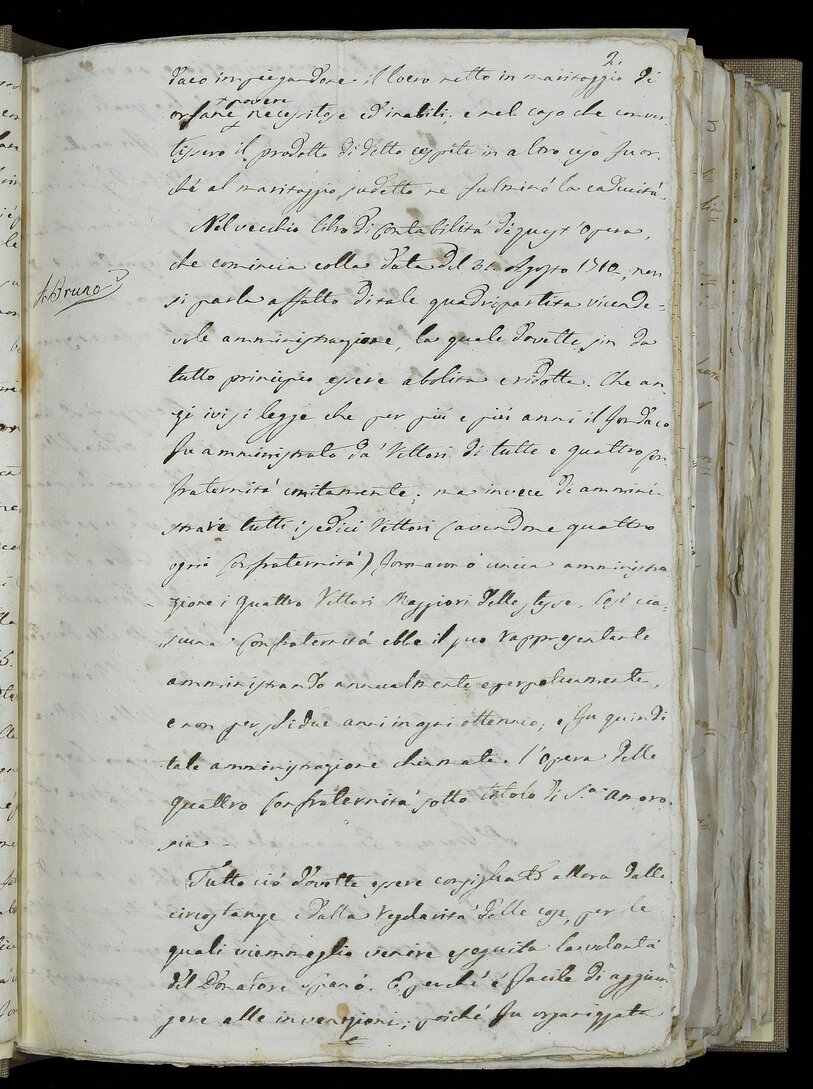 2.
daco impiegandone il lucro netto in maritaggio di
+ povere
orfane + necessitose ed inabili; e nel caso che conver-
tissero il prodotto di detto cespite in altro uso fuor-
ché al maritaggio sudetto ne fulminò la caducità.
Nel vecchio libro di contabilità di quest'opera,
che comincia colla data del 31. Agosto 1710, non
A. Bruno
si parla affatto di tale quadripartita vicende-
vole amministrazione, la quale dovette sin da
tutto principio essere abolita e ridotta. Che an-
zi ivi si legge che per più e più anni il fondaco
fu amministrato da' Rettori di tutte e quattro con-
fraternità unitamente; ma invece di ammini-
strare tutti i sedici Rettori (avendone quattro
ogni confraternità) formarono unica amministra-
zione i quattro Rettori Maggiori delle stesse. Così cia-
scuna Confraternità ebbe il suo rappresentante
amministrando annualmente e perpetuamente,
e non per soli due anni in ogni ottennio; e fu quindi
tale amministrazione chiamata. l'opera delle
quattro Confraternità sotto titolo di S.a
Tutto ciò dovette essere consigliato allora dalle
circostanze e dalla regolarità delle cose, per le
quali viemmeglio venire eseguita la volontà
del Donatore Spanò. E perché è facile di aggiun-
gere alle invenzioni; poiché fu organizzata